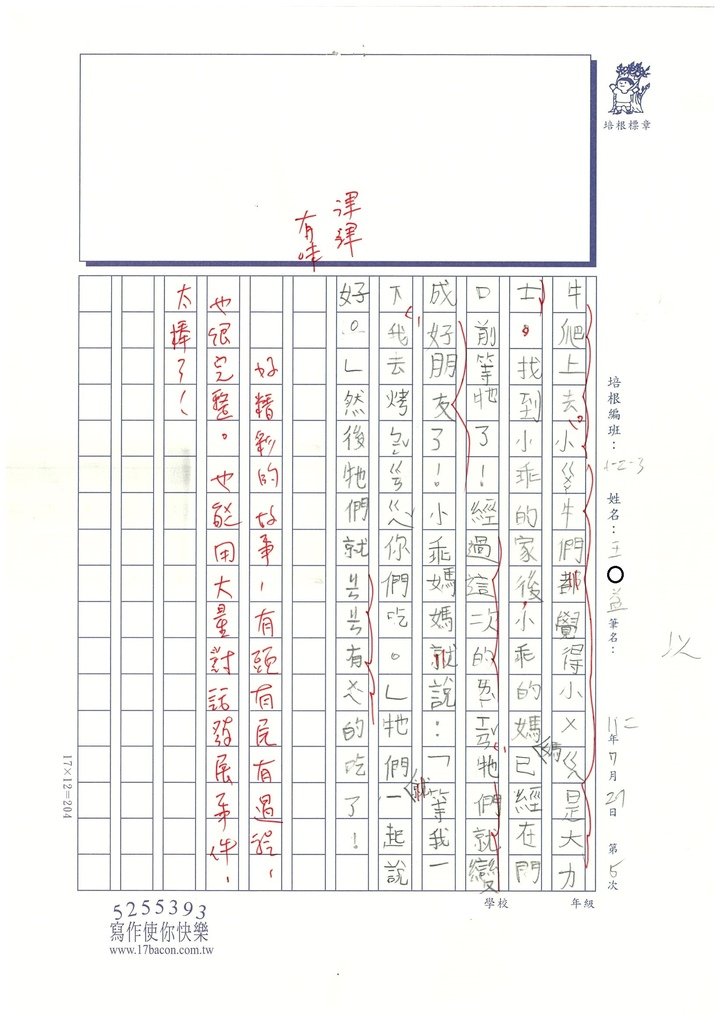 培根標章
津津
有味
培根編班:1-2-3 姓名:王○益 筆名: 112年7月29日 第5次
以
牛爬上去,小ㄍㄨㄚ牛們都覺得小ㄨㄍㄨㄟ是大力
士。找到小乖的家後,小乖的媽媽已經在門
口前等牠了!經過這次的,牠們就變
成好朋友了!小乖媽媽就說:「等我一
下,我去烤你們吃。」牠們就一起說
好。」然後牠們就有ㄨㄟˋ的吃了!
好精彩的故事,有頭有尾有過程,
也很完整。也能用大量對話發展事件,
太棒了!
17×12=204
學校 年級
5255393
寫作使你快樂
www.17bacon.com.tw